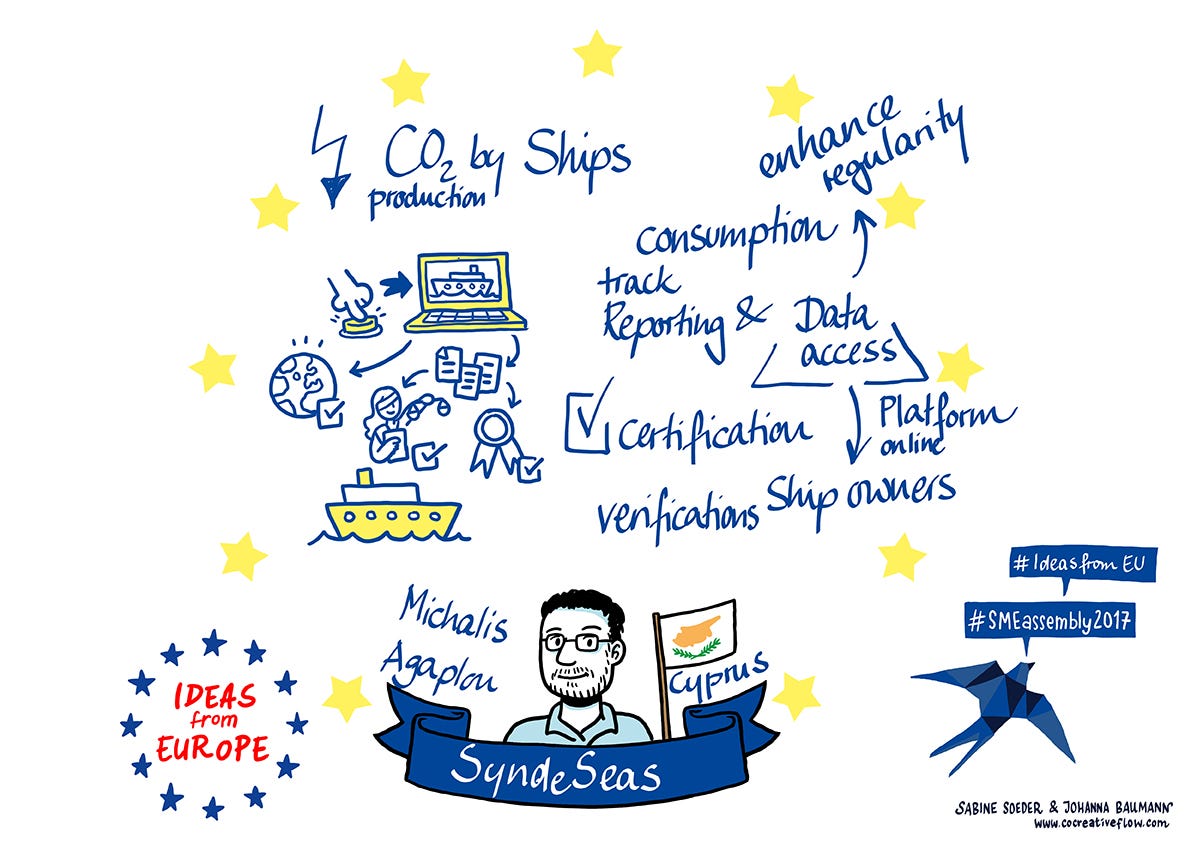 CO₂ by Ships
production
enhance
regularity
consumption
track
Reporting & Data
access
Platform
online
Certification
verifications Ship owners
#IdeasfromEU
#SMEassembly2017
Michalis
Agaplou
Cyprus
SyndeSeas
IDEAS
from
EUROPE
SABINE SOEDER & JOHANNA BAUMANN
www.cocreativeflow.com